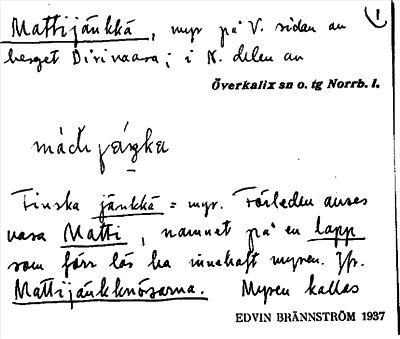 1
Mattijänkkä, myr på V. sidan av
berget Dirivaara; i N. delen av
Överkalix sn o. tg Norrb. l.
Finska jänkkä = myr. Förleden anses
vara Matti, namnet på en lapp
som förr lös ha innehaft myren. Jfr.
Mattijänkknösarna. Myren kallas
EDVIN BRÄNNSTRÖM 1937